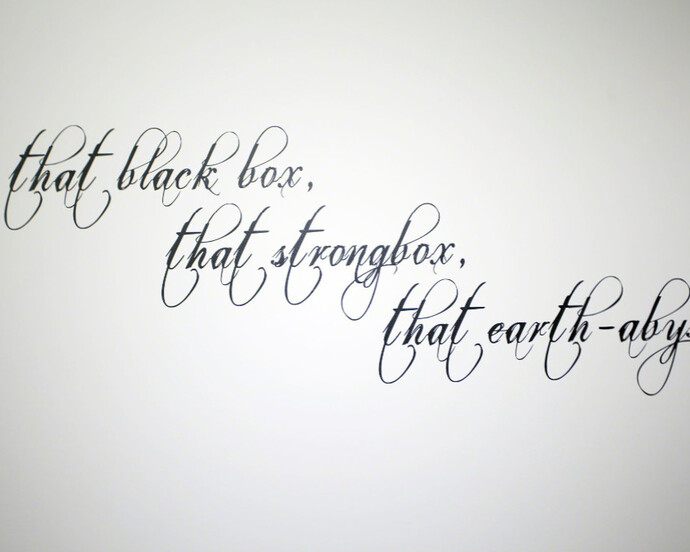 that black box,
that strongbox,
that earth-abys